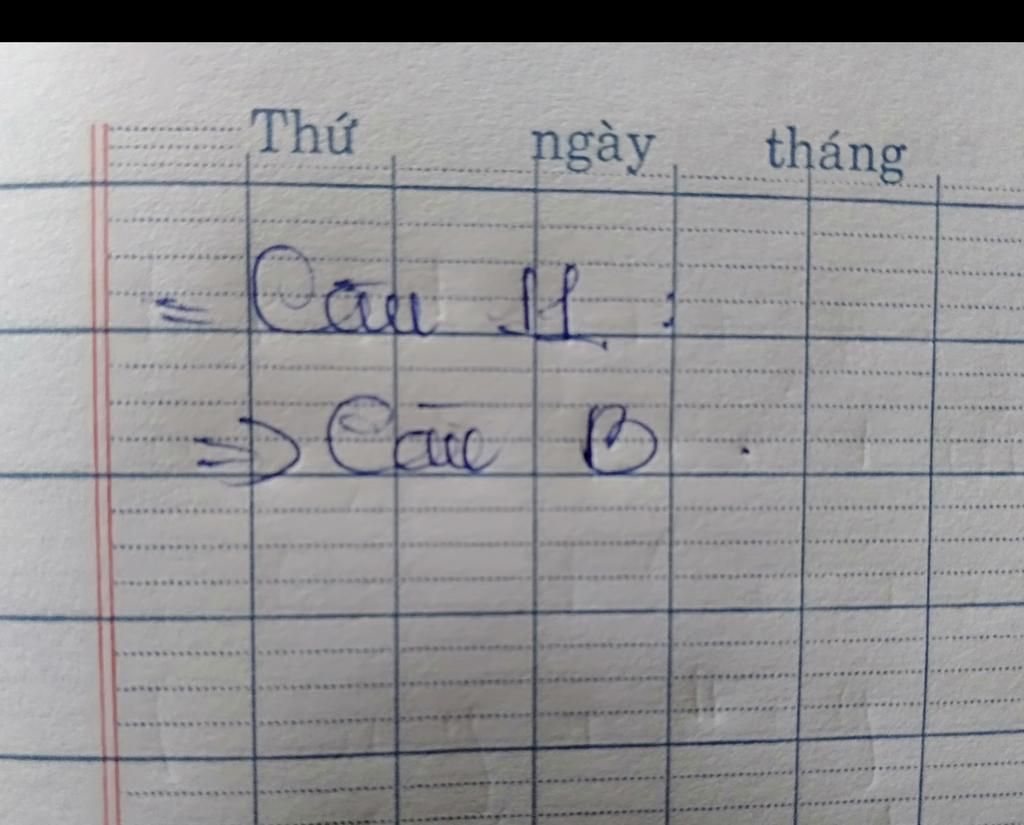 Thứ ngày tháng
= Câu 11 :
=> Câu B .